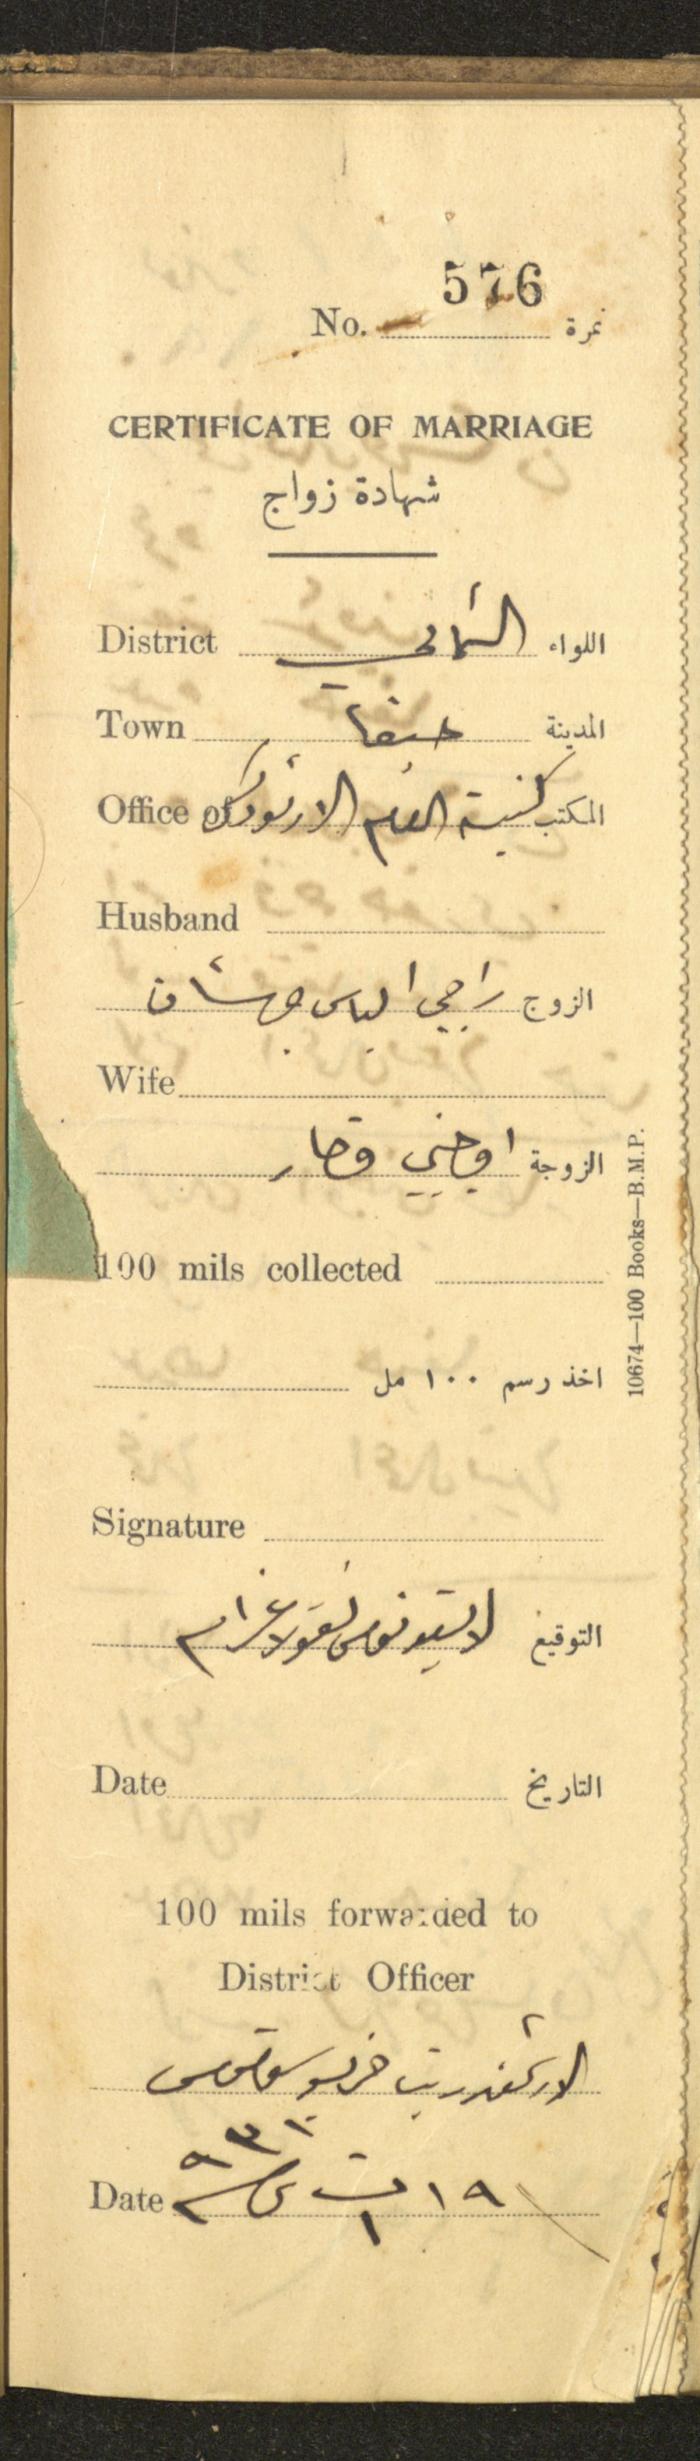 576
No. نمرة
CERTIFICATE OF MARRIAGE
شهادة زواج
District الشمالي اللواء
Town حيفا المدينة
Office of كنيسة الروم الارثوذكس المكتب
Husband
الزوج راجي الياس جهشان
Wife
الزوجة اوجني قصار
100 mils collected
اخذ رسم ١٠٠ مل
Signature
التوقيع نقولا
Date التاريخ
100 mils forwarded to
District Officer
الارشمندريت
Date ١٩ ت ١ سنة ٩٣١
10674—100 Books—B.M.P.